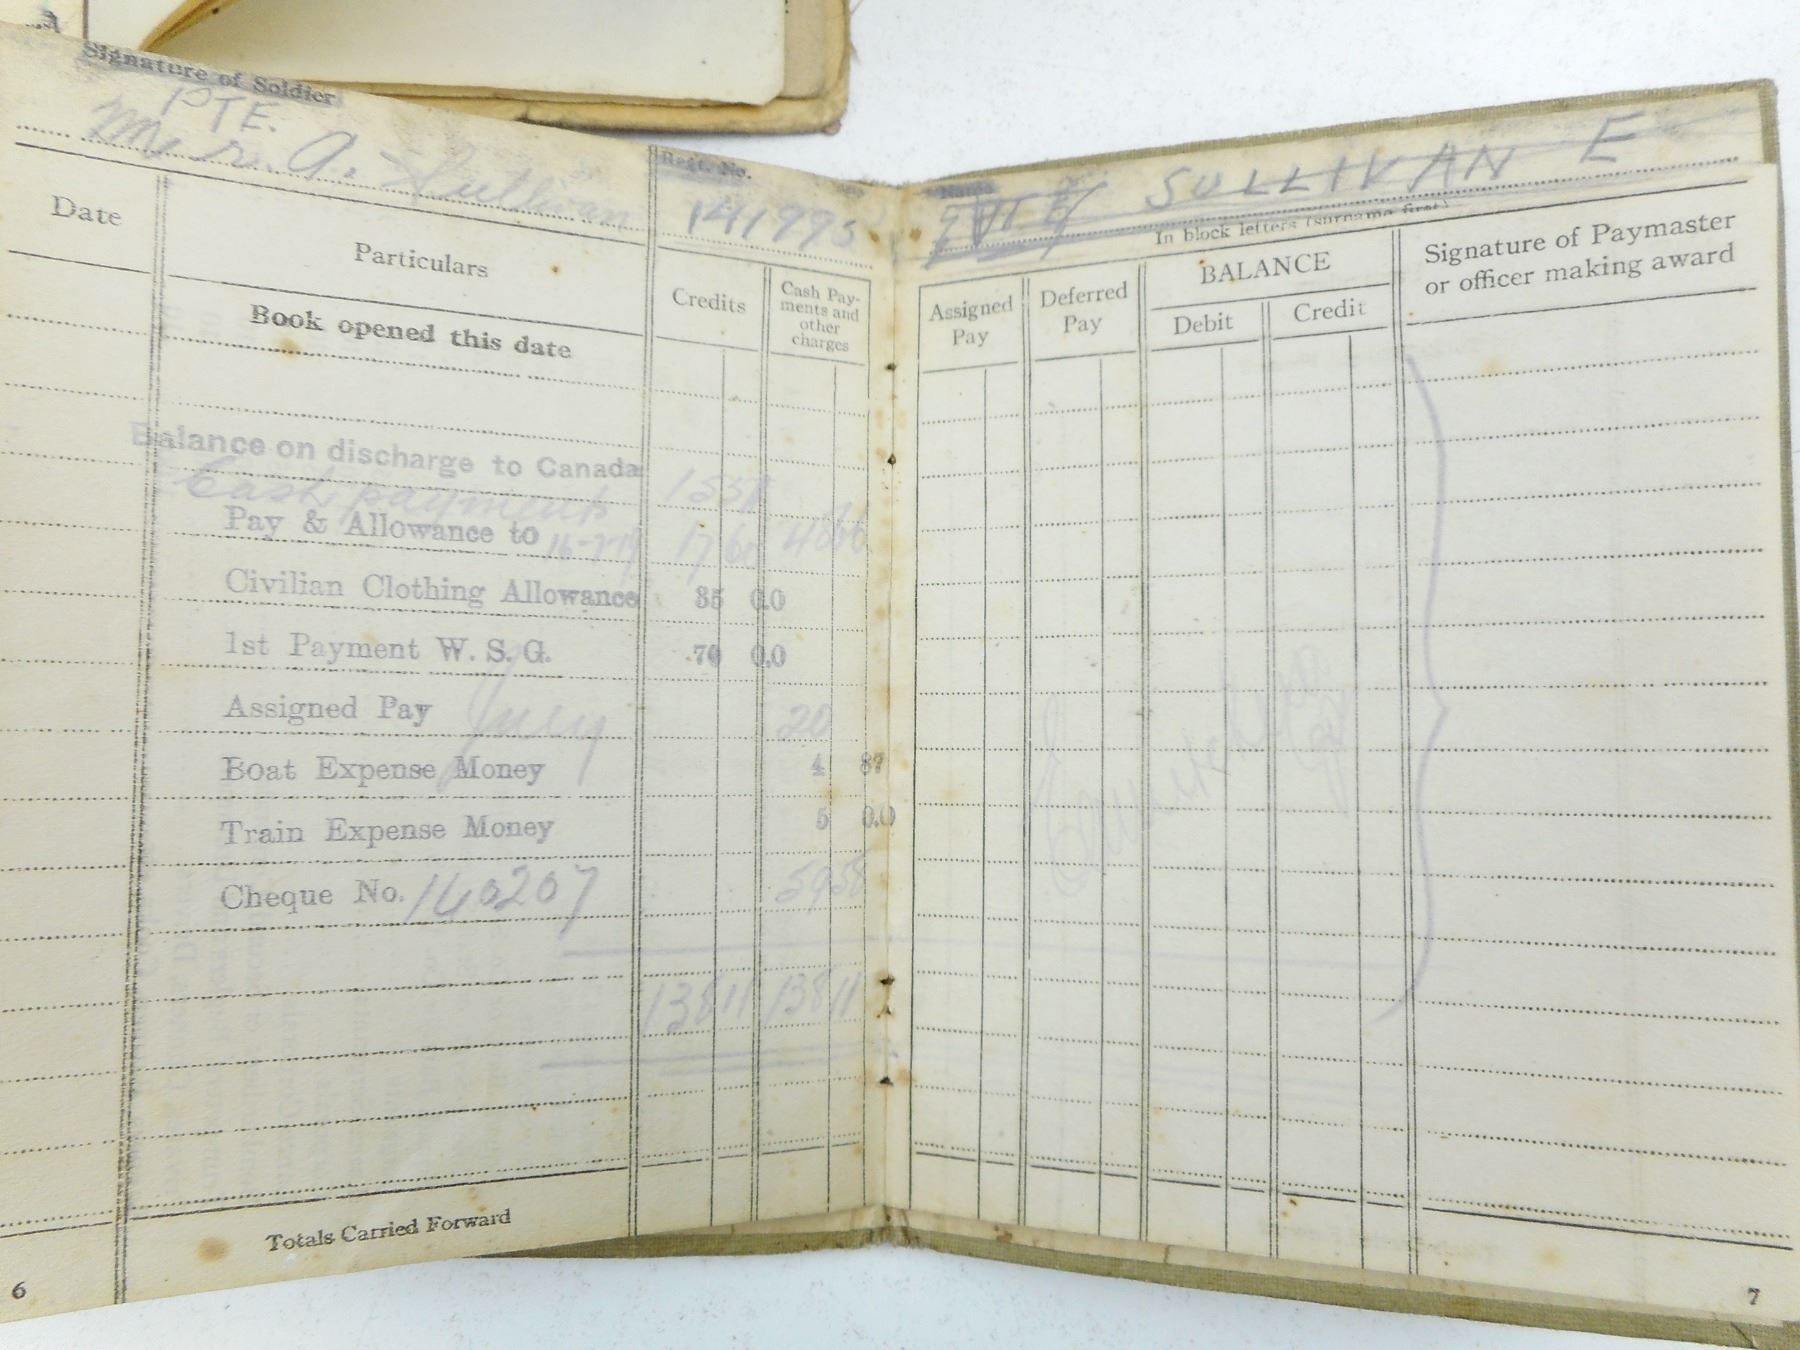 Signature of Soldier
PTE.
Mr. A. Sullivan
Regt. No.
141993
Name
SULLIVAN E
In block letters (surname first)
Date
Particulars
Credits
Cash Pay-
ments and
other
charges
Assigned
Pay
Deferred
Pay
BALANCE
Debit
Credit
Signature of Paymaster
or officer making award
Book opened this date
Balance on discharge to Canada
Cash payments
Pay & Allowance to 16-7-19
Civilian Clothing Allowance 35 0.0
1st Payment W. S. G. 70 0.0
Assigned Pay July 20
Boat Expense Money 4 87
Train Expense Money 5 0.0
Cheque No. 160207 5958
13811 13811
Totals Carried Forward
6
7